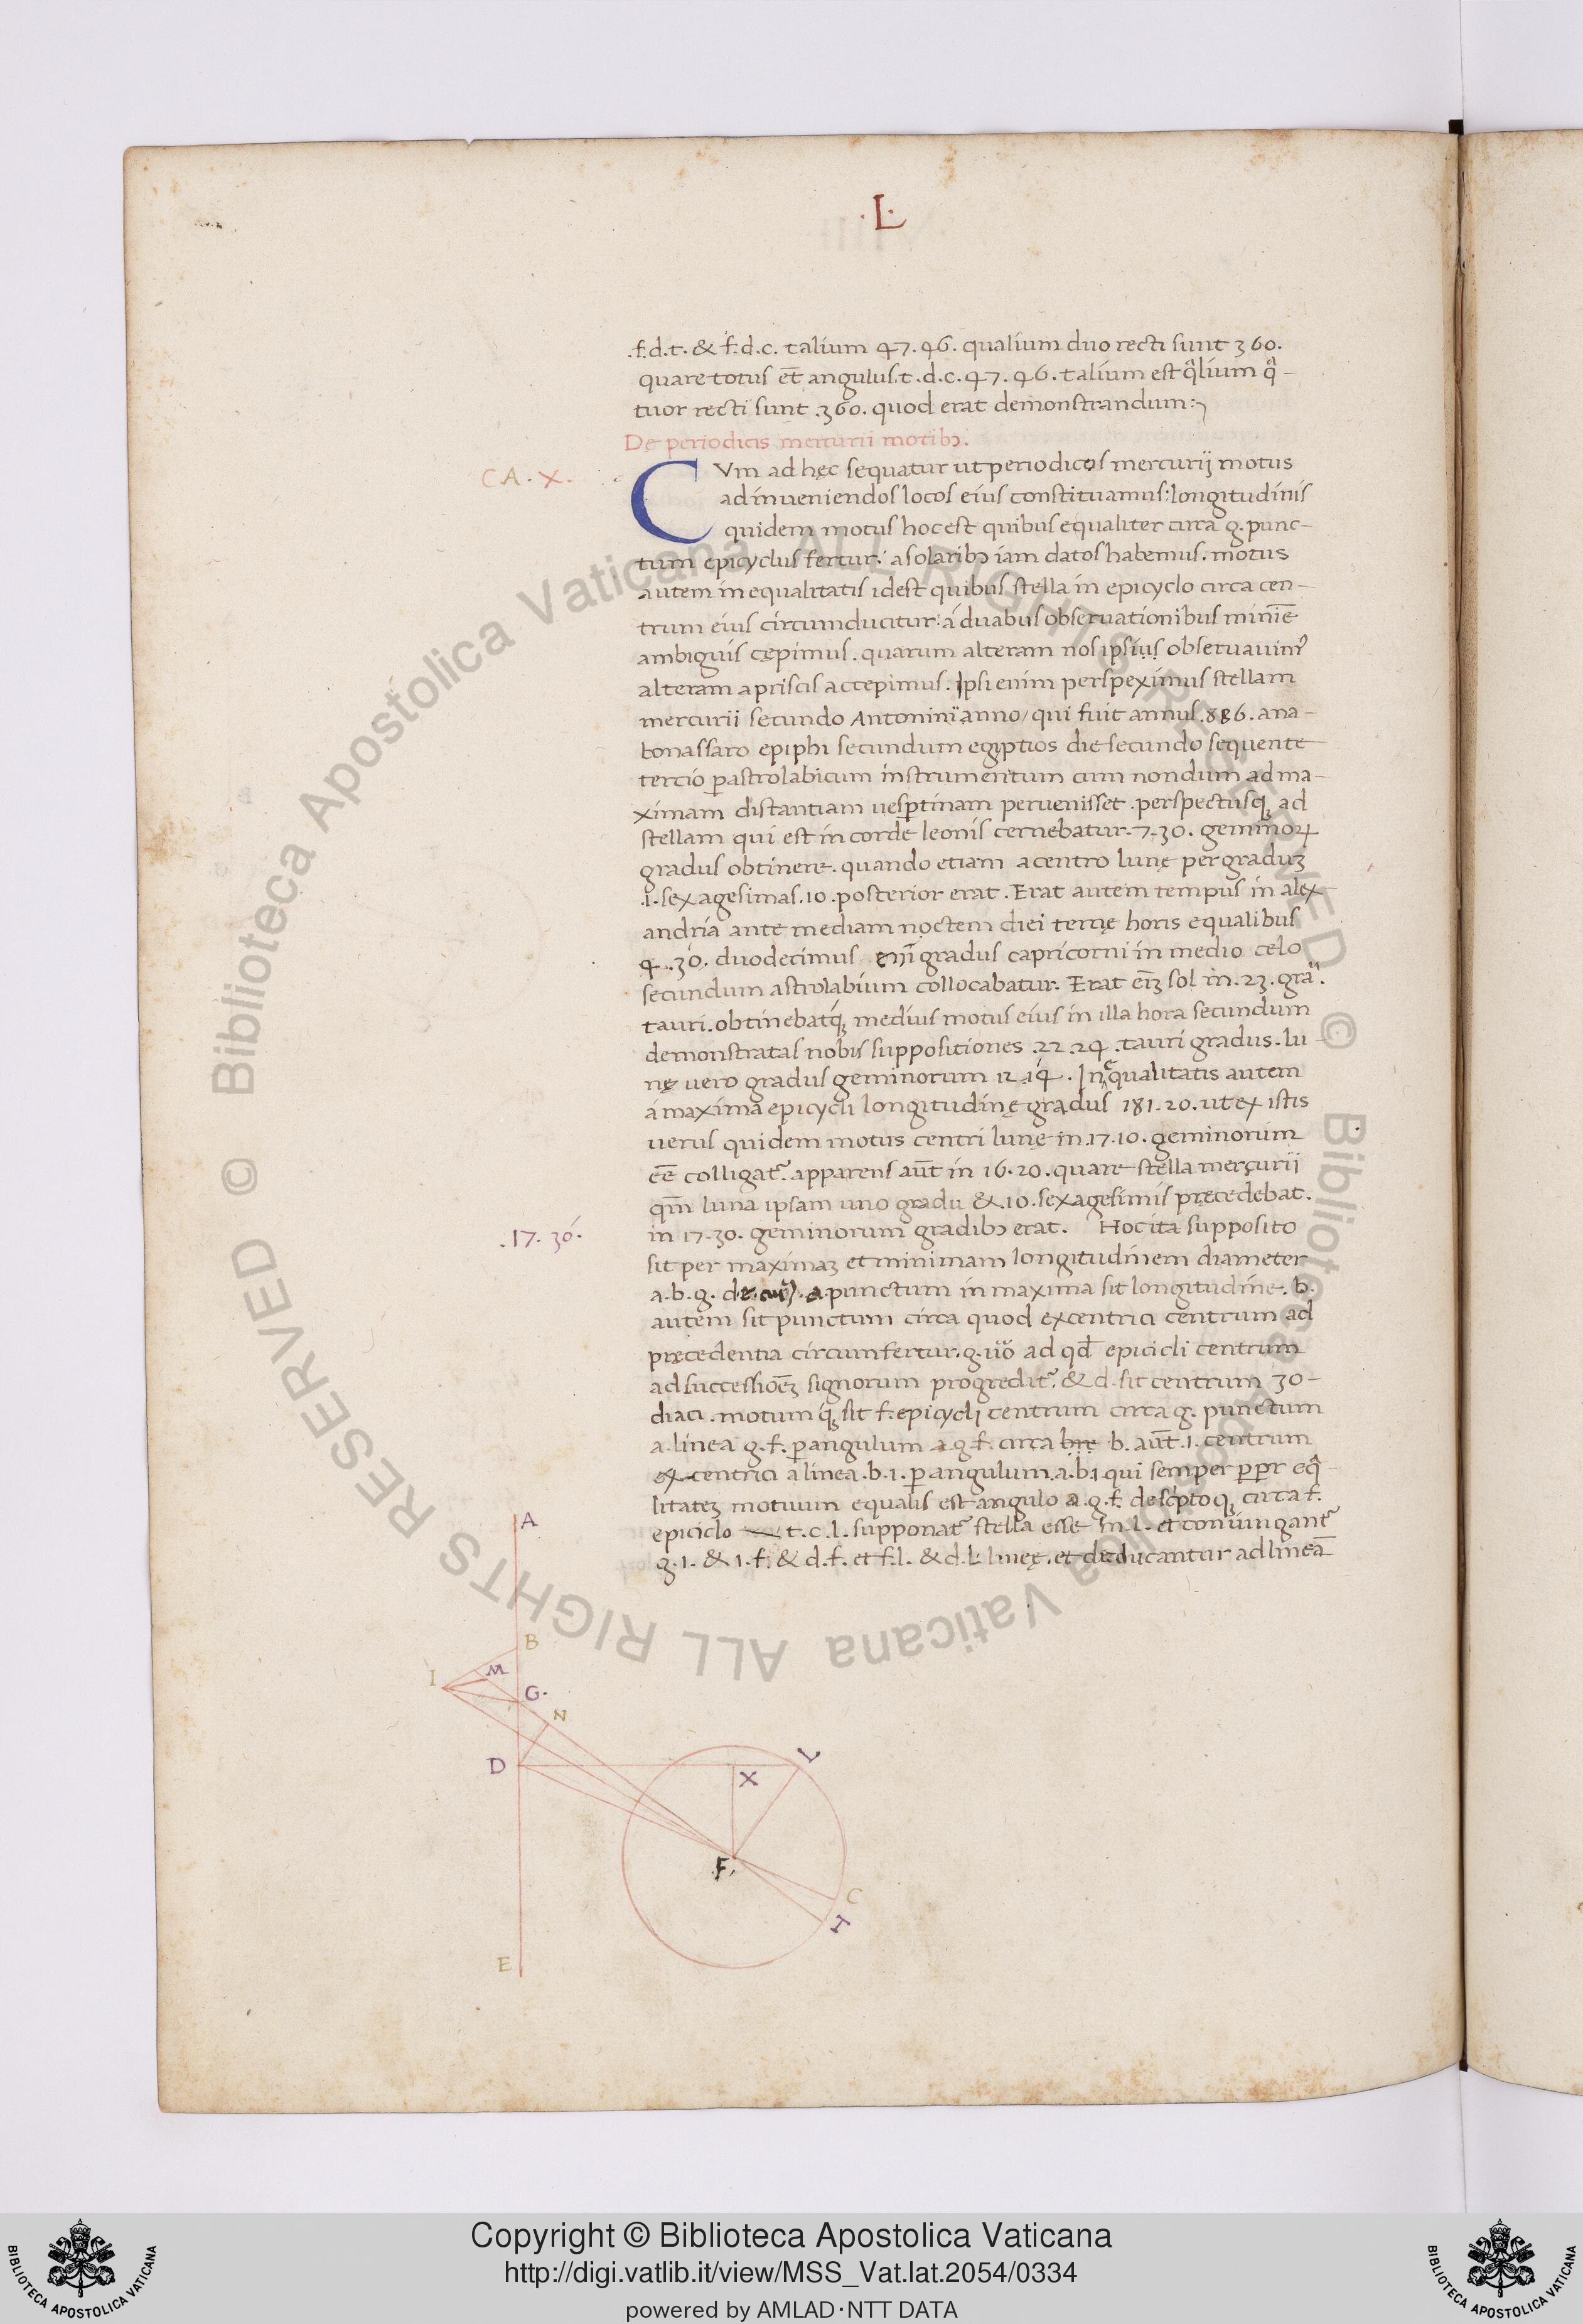 .L.
.f.d.t. & f.d.c. talium 47.46. qualium duo recti sunt 360.
quare totus et̄ angulus.t.d.c.47.46.talium est q̄lium q̄-
tuor recti sunt .360. quod erat demonstrandum:
De periodicis mercurii motibꝫ.
CA. X.
CVm ad hęc sequatur ut periodicos mercurij motus
ad inueniendos locos eius constituamus: longitudinis
quidem motus hoc est quibus equaliter circa g. punc-
tum epicyclus fertur: a solaribꝫ iam datos habemus. motus
autem inequalitatis idest quibus stella in epicyclo circa cen-
trum eius circumducitur: a duabus obseruationibus minīe
ambiguis cępimus. quarum alteram nos ipsius obseruauimꝰ
alteram a priscis accepimus. Ipsi enim perspeximus stellam
mercurii secundo Antonini anno/ qui fuit annus .886. ana-
bonassaro epiphi secundum egiptios die secundo sequente
tercio p̱ astrolabicum instrumentum cum nondum ad ma-
ximam distantiam uesp̱tinam peruenisset. perspectusqꝫ ad
stellam qui est in corde leonis cernebatur. 7.30. geminoꝝ
gradus obtinere. quando etiam a centro lunę per graduꝫ
.1. sexagesimas .10. posterior erat. Erat autem tempus in alex-
andria ante mediam noctem diei tercię horis equalibus
4.30. duodecimus gradus capricorni in medio celo
secundum astrolabium collocabatur. Erat eī̄ꝫ sol in .23. grā.
tauri. obtinebatqꝫ medius motus eius in illa hora secundum
demonstratas nobis suppositiones .22.24. tauri gradus. lu-
nę uero gradus geminorum 12.14. Inęqualitatis autem
a maxima epicycli longitudinę gradus 181.20. ut ex istis
uerus quidem motus centri lunę in .17.10. geminorum
eē colligat᷑. apparens aūt in 16.20. quare stella mercurii
qm̄ luna ipsam uno gradu &.10. sexagesimis pręcedebat.
.17.30.
in 17.30. geminorum gradibꝫ erat. Hoc ita supposito
sit per maximaꝫ et minimam longitudinem diameter
a.b.g. d.e. a punctum in maxima sit longitudine. b.
autem sit punctum circa quod excentrici centrum ad
pręcedentia circumfertur. g. uō ad qd̄ epicicli centrum
ad successioēꝫ signorum progredit᷑. & d. sit centrum zo-
diaci. motumqꝫ sit f. epicycli centrum circa g. punctum
a linea g.f. p̱ angulum a.g.f. circa b. aūt. 1. centrum
excentrici a linea .b.1. p̱ angulum .a.b.1 qui semper p̱pr eq̄-
litateꝫ motuum equalis est angulo a.g.f. descˀptoqꝫ circa f.
epiciclo t.c.l. supponat᷑ stella esse in .l. et coniungant᷑
g.1. & 1.f. & d.f. et f.l. & d.l. linęę. et deducantur ad lineā
A
B
M
I
G.
N
D
X
L
F.
C
T
E
Copyright © Biblioteca Apostolica Vaticana
http://digi.vatlib.it/view/MSS_Vat.lat.2054/0334
powered by AMLAD·NTT DATA
BIBLIOTECA APOSTOLICA VATICANA
BIBLIOTECA APOSTOLICA VATICANA
© Biblioteca Apostolica Vaticana ALL RIGHTS RESERVED © Biblioteca Apostolica Vaticana ALL RIGHTS RESERVED